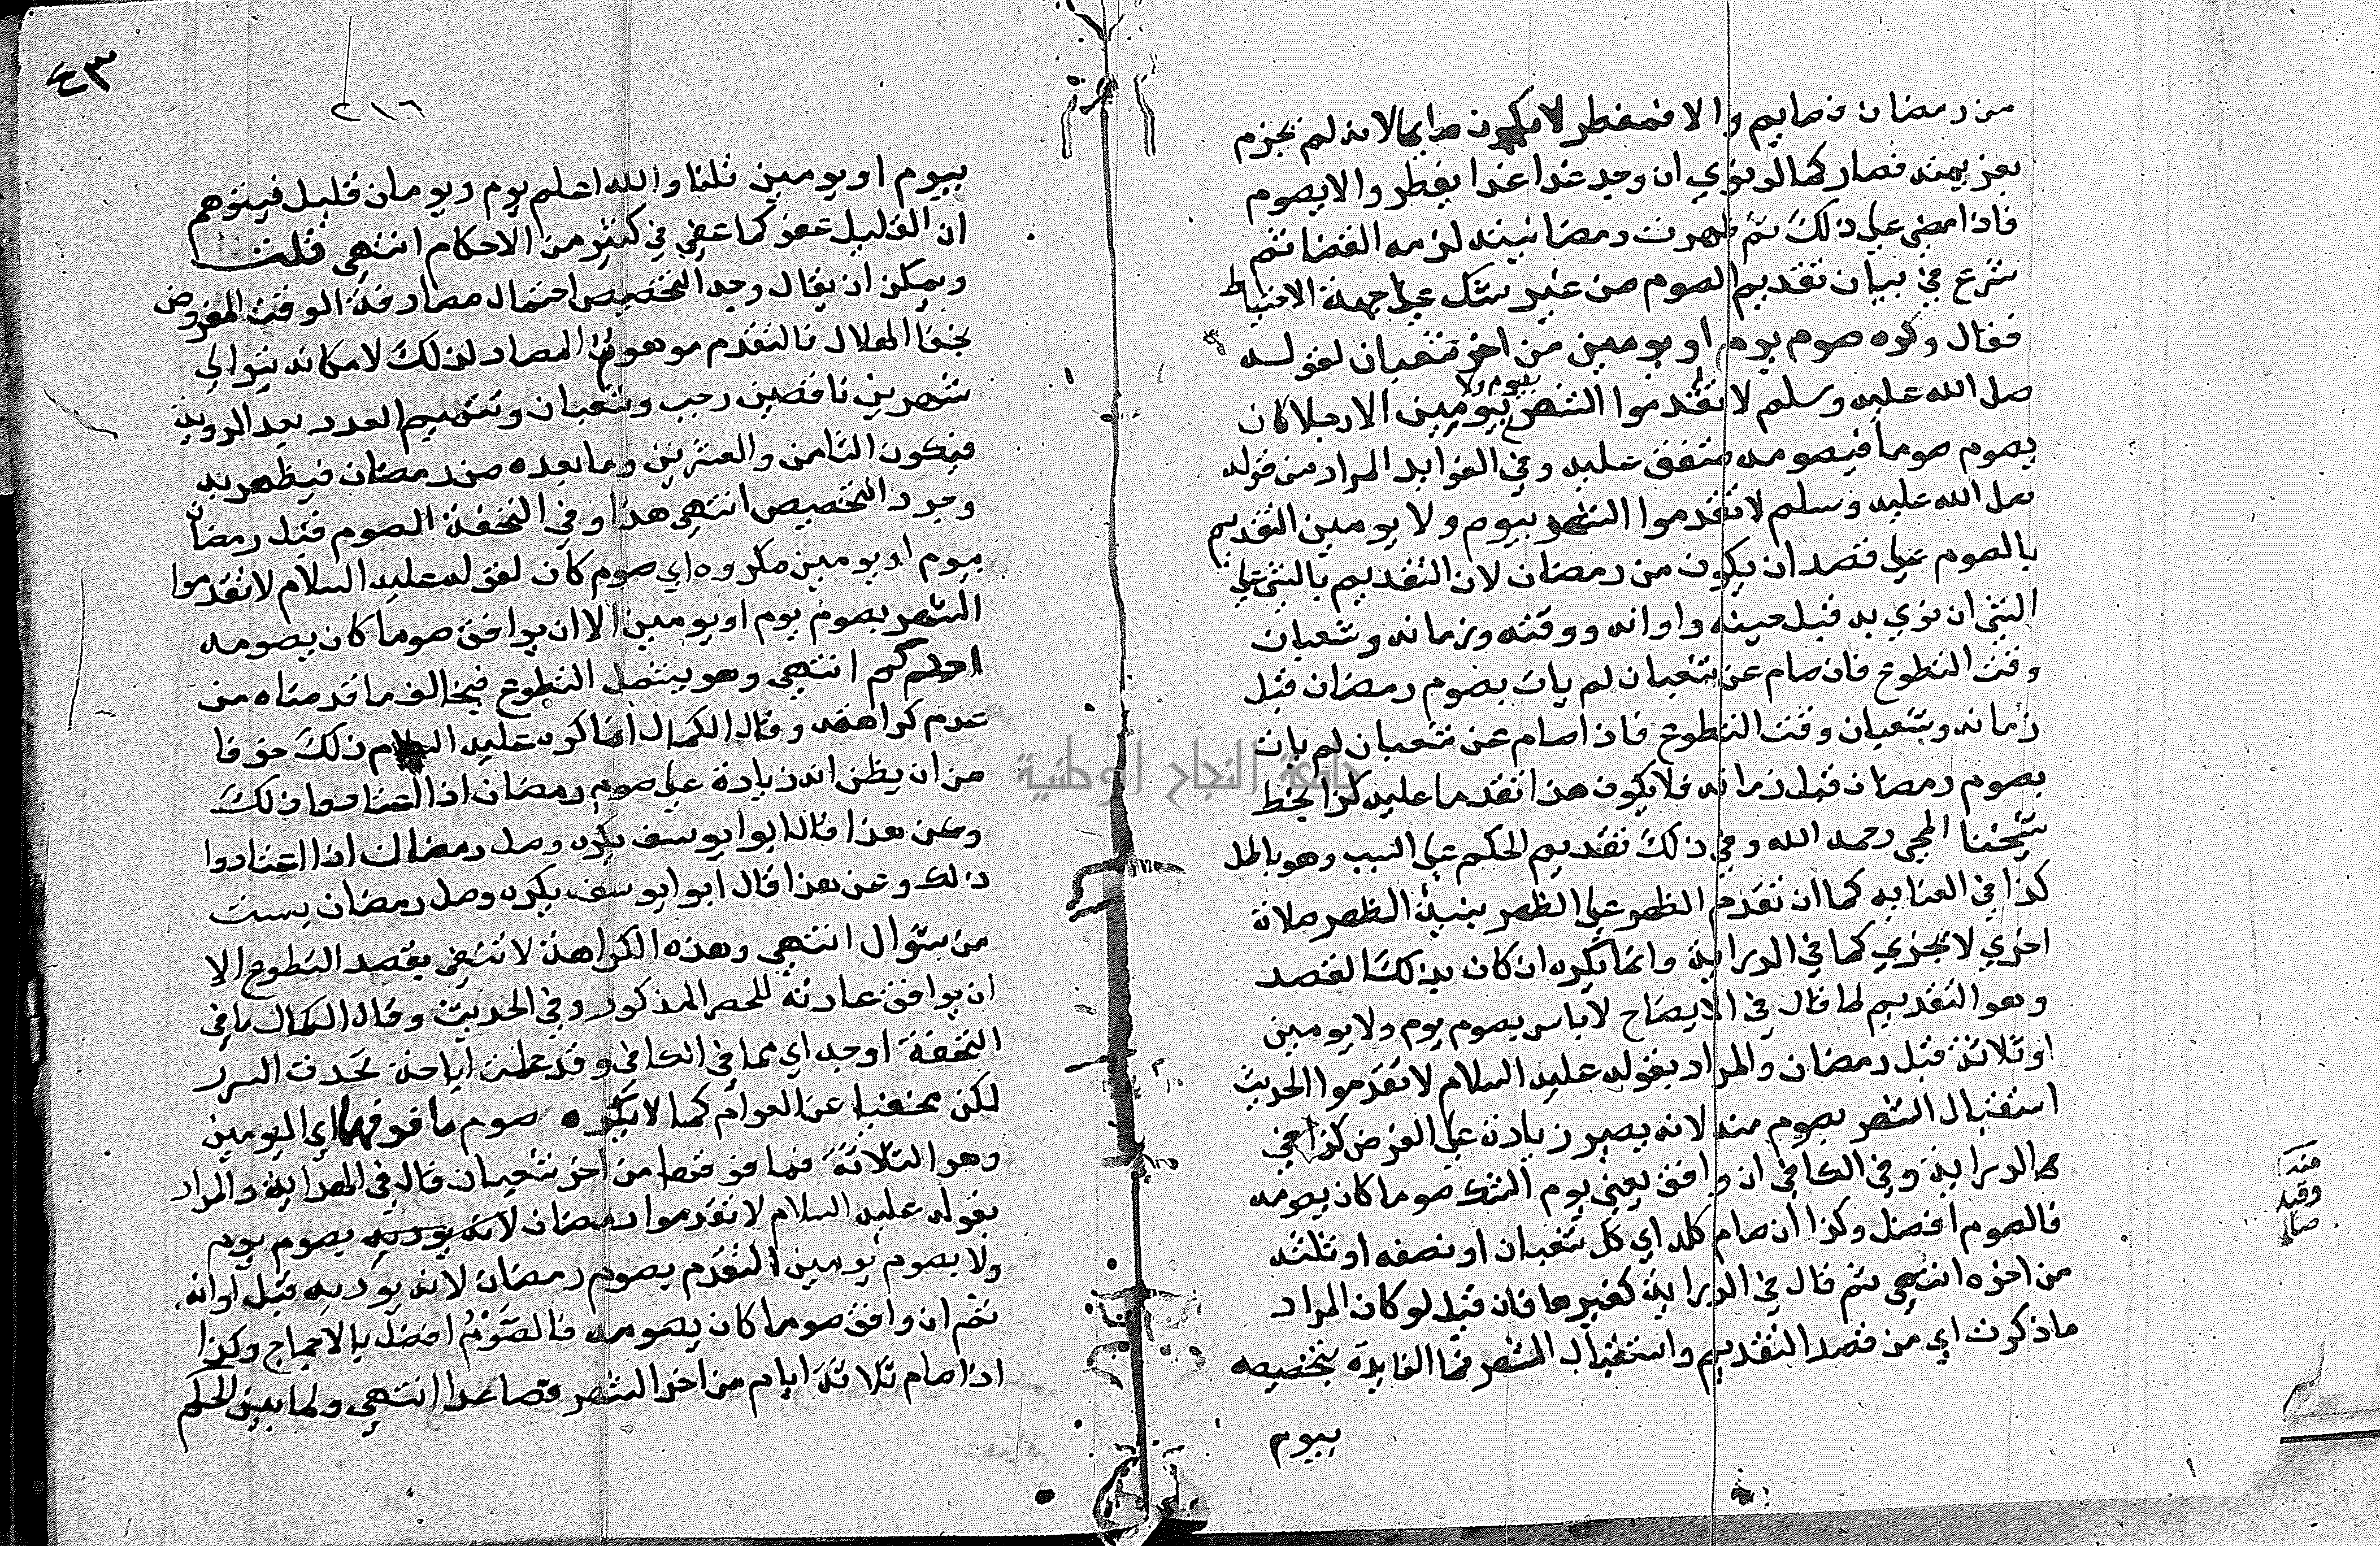 من رمضان فصايم والا فمفطر لا يكون صايما لانه لم يجزم
بعزيمته فصار كما لو نوي ان وجد غدا غدا يفطر والا يصوم
فاذا مضي علي ذلك ثم ظهرت رمضانيته لزمه القضا ثم
شرع في بيان تقديم الصوم من غير شك علي جهة الاحتياط
فقال وكره صوم يوم او يومين من اخر شعبان لقوله
صلى الله عليه وسلم لا تقدموا الشهر بيوم ولا بيومين الا رجلا كان
يصوم صوما فيصومه متفق عليه وفي الفوايد المراد من قوله
صلى الله عليه وسلم لا تقدموا الشهر بيوم ولا يومين التقديم
بالصوم علي قصد ان يكون من رمضان لان التقديم بالشي علي
الشي ان نوي به قبل حينه واوانه ووقته وزمانه وشعبان
وقت التطوع فان صام عن شعبان لم يات بصوم رمضان قبل
زمانه وشعبان وقت التطوع فاذا صام عن شعبان لم يات
بصوم رمضان قبل زمانه فلا يكون هذا تقدما عليه كذا بخط
شيخنا المحبي رحمه الله وفي ذلك تقديم الحكم علي السبب وهو باطل
كذا في العنايه كما ان تقدم الظهر علي الظهر بنية الظهر صلاة
اخري لا تجزي كما في الدراية وانما يكره ان كان بذلك القصد
وهو التقديم لما قال في الايضاح لا باس بصوم يوم ولا يومين
او ثلاثة قبل رمضان والمراد بقوله عليه السلام لا تقدموا الحديث
استقبال الشهر بصوم منه لانه يصير زيادة علي الفرض كذا في
الدراية وفي الكافي ان وافق يعني يوم الشك صوما كان يصومه
فالصوم افضل وكذا ان صام كله اي كل شعبان او نصفه او ثلثه
من اخره انتهي ثم قال في الدراية كغيرها فان قيل لو كان المراد
ما ذكرت اي من قصد التقديم واستقبال الشهر فما الفايدة بتخصيصه
بيوم
منه
وقبله
٤٣
٢١٦
بيوم او يومين قلنا والله اعلم يوم ويومان قليل فيتوهم
ان القليل عفو كما عفي في كثير من الاحكام انتهي قلت
ويمكن ان يقال وجه التخصيص احتمال مصادفة الوقت المفروض
بخفا الهلال فالتقدم موهوم المصادفة لذلك لامكانه بتوالي
شهرين ناقصين رجب وشعبان وتتميم العدد بعد الروية
فيكون الثامن والعشرين وما بعده من رمضان فيظهر به
وجود التخصيص انتهي هذا وفي التحفة الصوم قبل رمضان
بيوم او يومين مكروه اي صوم كان لقوله عليه السلام لا تقدموا
الشهر بصوم يوم او يومين الا ان يوافق صوما كان يصومه
احدكم انتهي وهو يشمل التطوع فيخالف ما قدمناه من
عدم كراهته وقال الكمال انما كره عليه السلام ذلك خوفا
من ان يظن انه زيادة علي صوم رمضان اذا اعتادوا ذلك
وعن هذا قال ابو ايوسف يكره وصل رمضان اذا اعتادوا
ذلك وعن هذا قال ابو ايوسف يكره وصل رمضان بست
من شوال انتهي وهذه الكراهة لا تنتفي بقصد التطوع الا
ان يوافق عادته للحصر المذكور وفي الحديث وقال الكمال ما في
التحفة اوجه اي مما في الكافي وقد علمت اباحة
لكن مختفيا عن العوام كما لا يكره صوم ما فوقهما اي اليومين
وهو الثلاثة فما فوقها من اخر شعبان قال في الهداية والمراد
بقوله عليه السلام لا تقدموا رمضان لانه يوديه بصوم يوم
ولا بصوم يومين التقدم بصوم رمضان لانه يوديه قبل اوانه
ثم ان وافق صوما كان يصومه فالصوم افضل بالاجماع وكذا
اذا صام ثلاثة ايام من اخر الشهر فصاعدا انتهي ولما بين الحكم
جامعة النجاح الوطنية